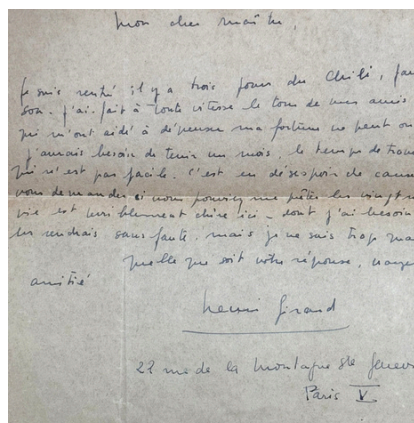 mon cher maître,
je suis rentré il y a trois jours du Chili,
son. j'ai fait à toute vitesse le tour de mes amis
qui m'ont aidé à dépenser ma fortune ne peut
j'aurais besoin de tenir un mois, le temps de
qui n'est pas facile. c'est en désespoir de
vous demander si vous pouviez me prêter les vingt
vie est terriblement chère ici - dont j'ai besoin
les rendrais sans faute. mais je ne sais trop
quelle que soit votre réponse,
amitié
henri girard
22 rue de la montagne Ste
Paris V